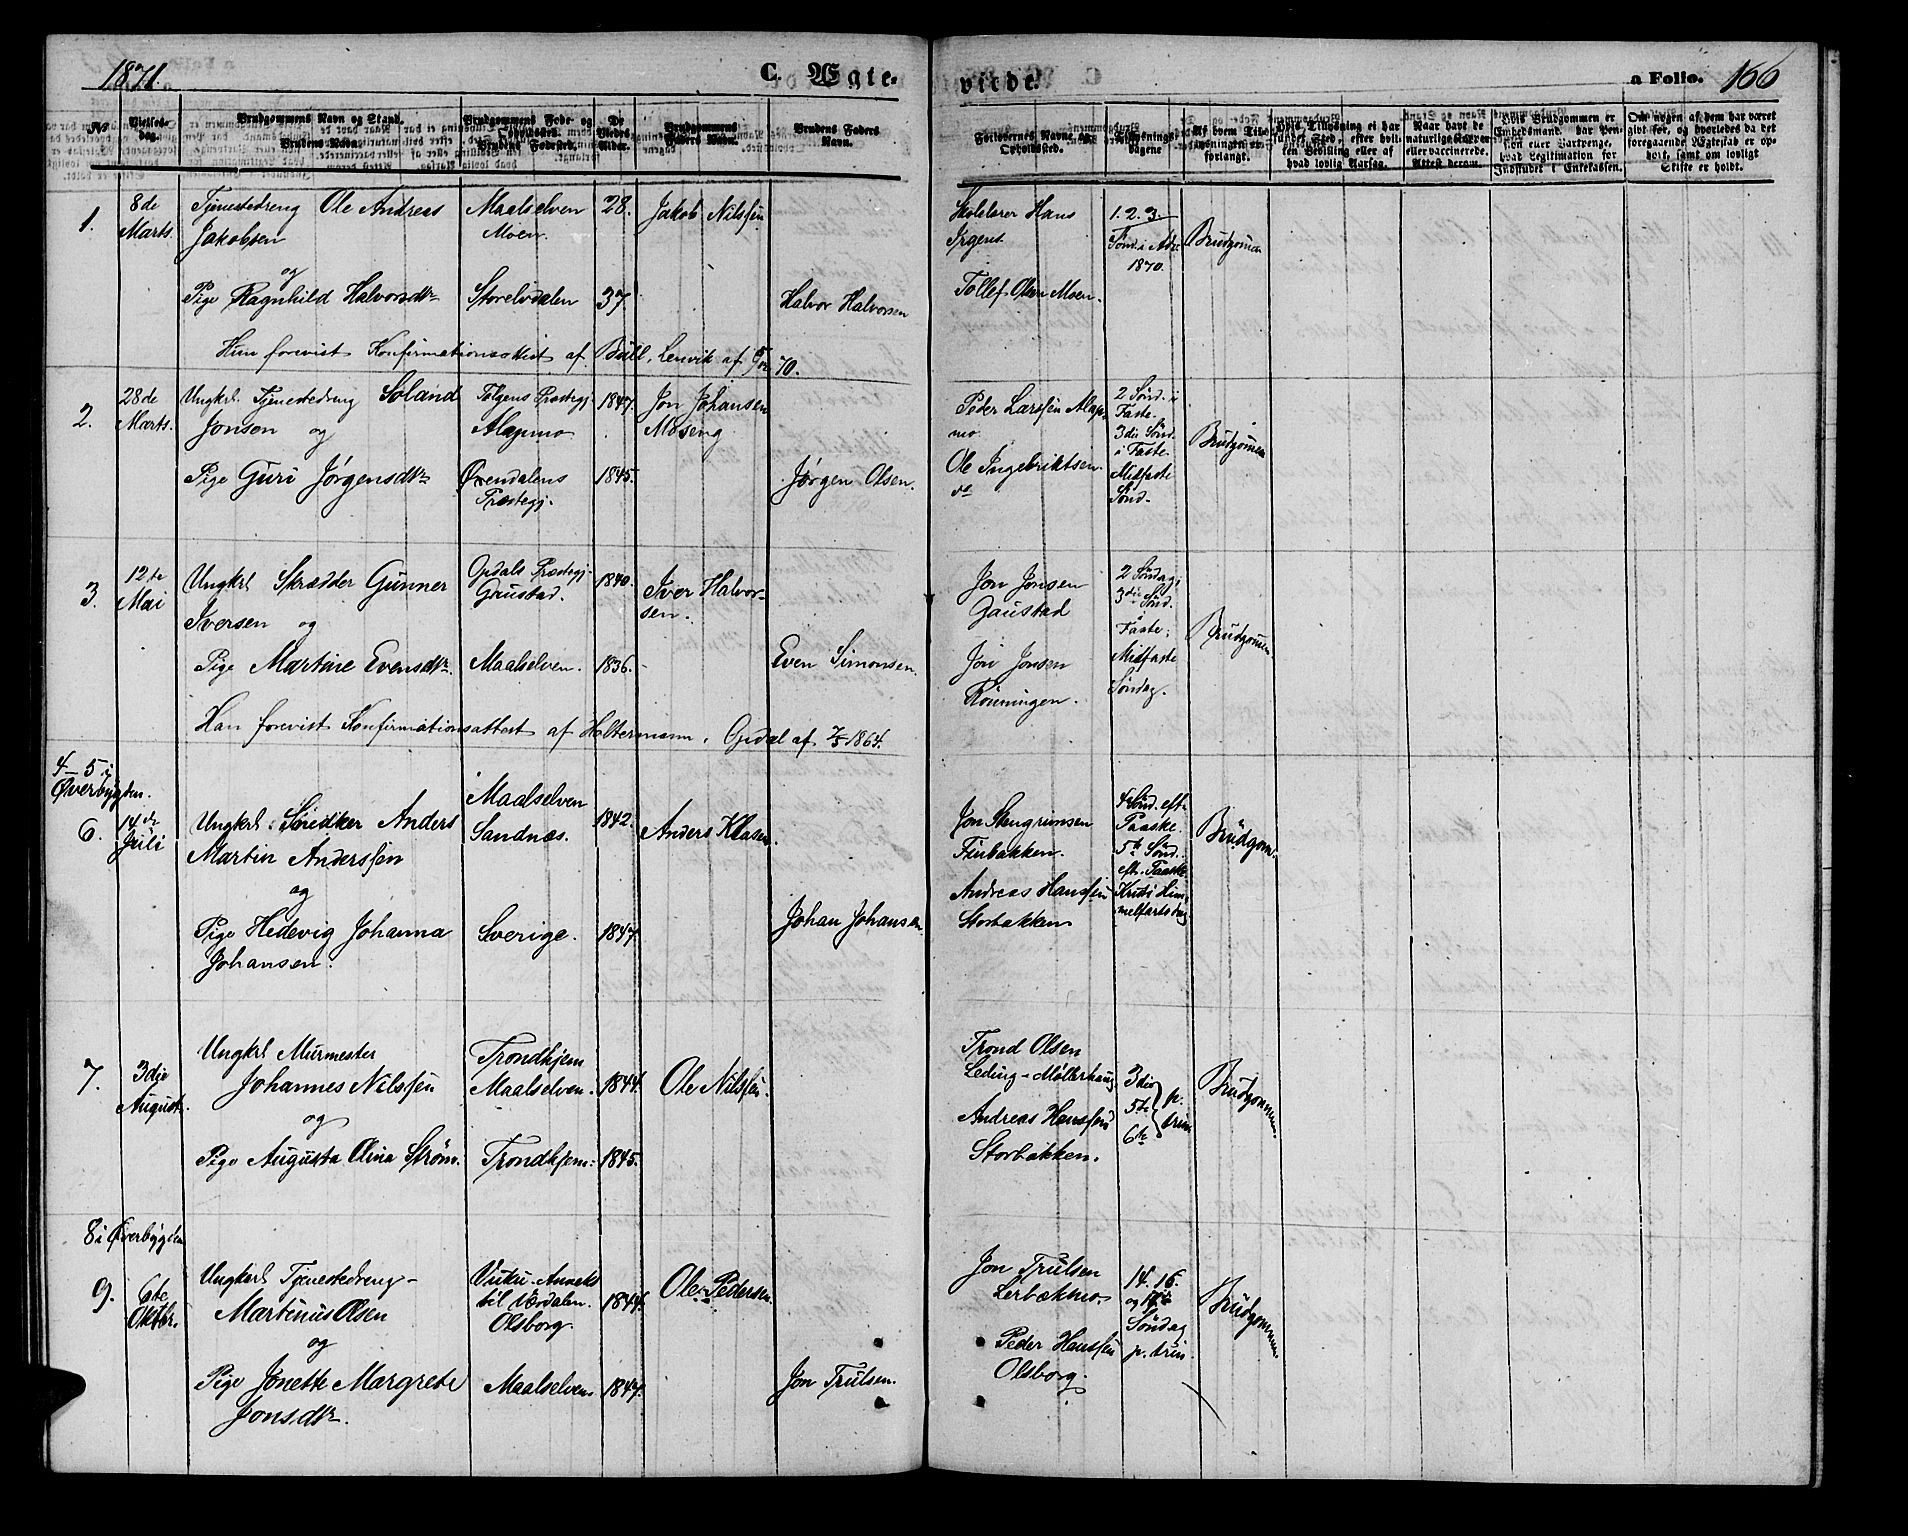 1871.
C. Ægte-
viede.
a Folio. 166
No
Vielses-
dag.
Brudgommens Navn og Stand.
Brudens Navn.
Brudgommens Føde- og
Opholdssted.
Brudens Fødested.
De
Viedes
Alder.
Brudgommens
Faders Navn.
Brudens Faders
Navn.
Forlovernes Navne og
Opholdssted.
dagene
Af hvem Til-
forlangt.
Hvis Tillysning ei har
fundet Sted, efter hvil-
ken Bevilling eller af
hvad lovlig Aarsag.
Naar havt de
naturlige Kopper
eller vaccinerede.
Attest derom.
Hvis Brudgommen er
Embedsmand, har Pen-
sion eller Vartpenge,
hvad Legitimation for
Indskudet i Enkekassen.
Om nogen af dem har været
gift før, og hvorledes da det
foregaaende Ægteskab er op-
hørt, samt om lovligt
Skifte er holdt.
1.
8de
Marts.
Tjenestedreng Ole Andreas
Jakobsen
og
Pige Ragnhild Halvorsdtr
Maalselven
Moen.
Storelvdalen
28.
37.
Jakob Nilssen
Halvor Halvorsen
Skolelærer Hans
Irgens
Tollef Olsen Moen.
1. 2. 3.
Sønd. i Adv.
1870.
Brudgomen
Hun forevist Konfirmationsattest af Bull, Lenvik af 70.
2.
28de
Marts.
Ungkrl. Tjenestedreng Soland
Jonsen og
Pige Guri Jørgensdtr
Tolgens Præstegj.
Alapmo
Øxendalens
Præstegj.
1847.
1845.
Jon Johansen
Moseng
Jørgen Olsen.
Peder Larssen Alap-
mo
Ole Ingebriktsen
do
2 Sønd. i
Faste.
3die Sønd.
i Faste
Midfaste
Sønd.
Brudgomen
3.
12te
Mai
Ungkrl Skrædder Gunner
Iversen og
Pige Martine Evensdtr.
Opdals Præstegj.
Gaustad.
Maalselven.
1840.
1836.
Iver Halvor-
sen.
Even Simonsen
Jon Jonsen
Gaustad
Jon Jonsen
Rønningen.
2 Søndag i
3die Sønd.
i
Faste;
Midfaste
Søndag.
Brudgomen
Han forevist Konfirmationsattest af Holtermann, Opdal af 1864.
4-5 i
Øverbygden.
6.
14de
Juli
Ungkrl. Snedker Anders
Martin Anderssen
og
Pige Hedevig Johanna
Johansen.
Maalselven
Sandnæs.
Sverige.
1842.
1847.
Anders Klasen.
Johan Johansen
Jon Stengrimsen
Finbakken.
Andreas Hanssen
Storbakken
4de Sønd. eft.
Paaske.
5te Sønd.
eft. Paaske
Kristi Him-
melfartsdag
Brudgom.
7.
3die
August.
Ungkrl Murmester
Johannes Nilssen
og
Pige Augusta Olina Strøm.
Trondhjem
Maalselven.
Trondhjem.
1844.
1845.
Ole Nilssen.
Trond Olsen
Leding - Møllerhaug
Andreas Hanssen
Storbakken.
3die
5te
6te
p.
trin
Brudgommen.
8 i Øverbygden
9.
6te
Oktbr.
Ungkarl Tjenestedreng
Martinus Olsen
og
Pige Jonette Margrete
Jonsdtr.
Vuku-Anneks
til Værdalen.
Olsborg.
Maalselven
1844.
1847.
Ole Pedersen.
Jon Trulsen.
Jon Trulsen
Lerbækmo.
Peder Hanssen
Olsborg.
14. 16.
og 17de
Søndag
p. trin.
Brudgommen.